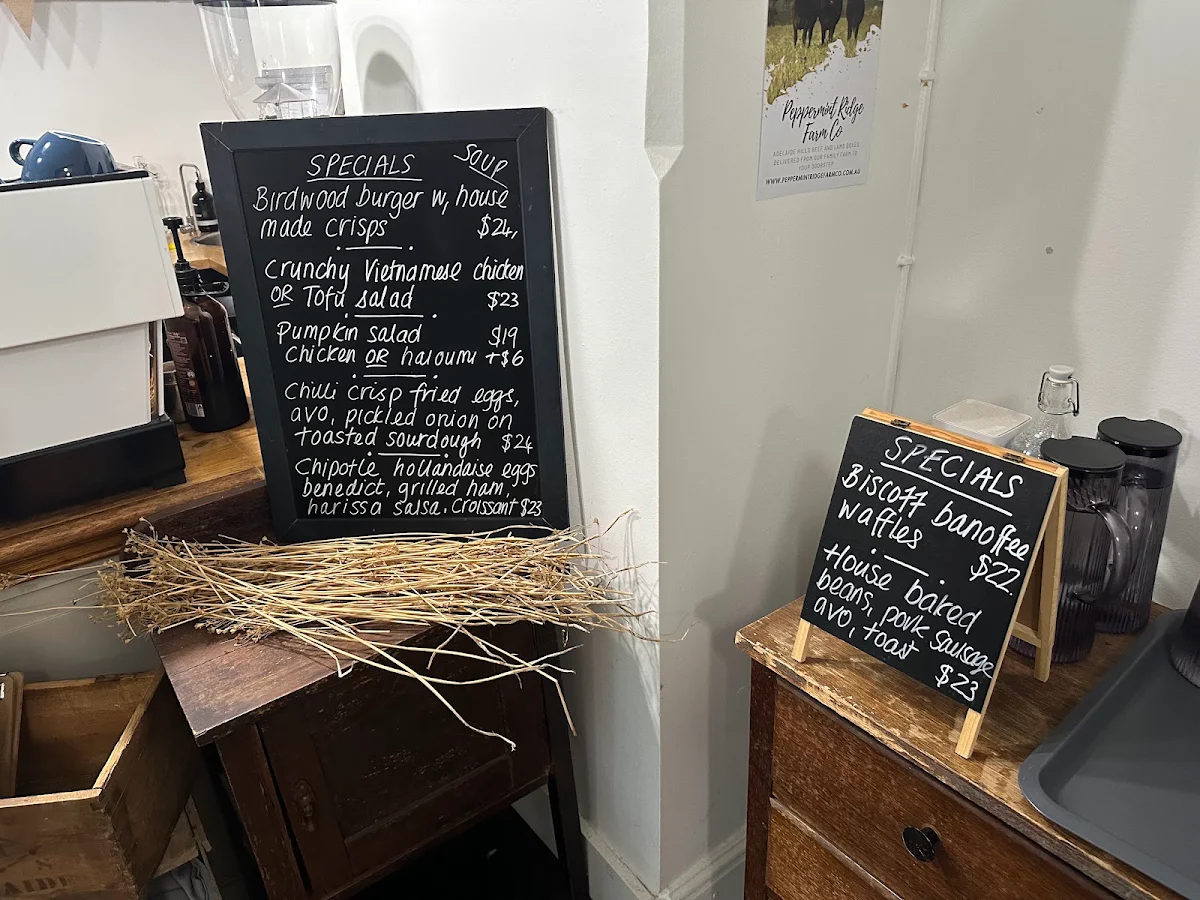 SPECIALS
SOUP
Birdwood burger w, house
made crisps $24,
Crunchy Vietnamese chicken
OR Tofu salad $23
Pumpkin salad $19
chicken OR haloumi +$6
Chilli crisp fried eggs,
avo, pickled onion on
toasted sourdough $24
Chipotle hollandaise eggs
benedict, grilled ham,
harissa salsa. Croissant $23
Peppermint Ridge
Farm Co
ADELAIDE HILLS BEEF AND LAMB BOXES
DELIVERED FROM OUR FAMILY FARM TO
YOUR DOORSTEP
WWW.PEPPERMINTRIDGEFARMCO.COM.AU
SPECIALS
Biscoff banoffee
waffles $22.
House baked
beans, pork sausage
avo, toast
$23